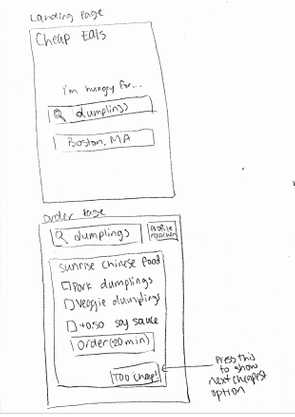 Landing Page
Cheap Eats
I'm hungry for...
dumplings
Boston, MA
Order Page
dumplings
Sunrise Chinese Food
Pork dumplings
Veggie dumplings
soy sauce
Order (20 min)
Too cheap!
Press this
to show
next cheapest
option